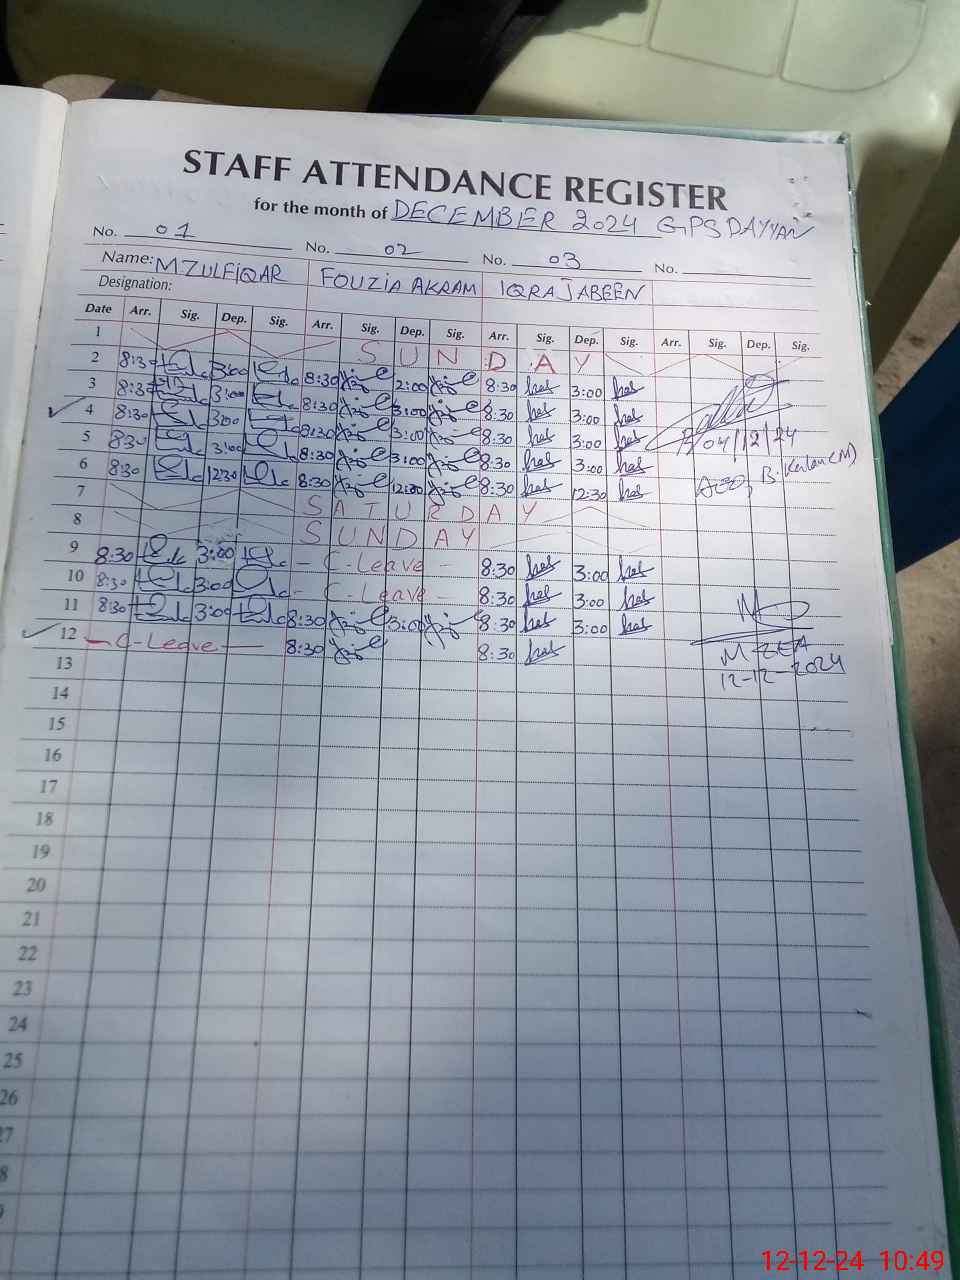 STAFF ATTENDANCE REGISTER
for the month of DECEMBER 2024 GPS DAYYAN
No. 01 No. 02 No. 03 No.
Name: M ZULFIQAR FOUZIA AKRAM IQRA JABEEN
Designation:
Date Arr. Sig. Dep. Sig. Arr. Sig. Dep. Sig. Arr. Sig. Dep. Sig. Arr. Sig. Dep. Sig.
1 SUNDAY
2 8:30 3:00 8:30 2:00 8:30 3:00
3 8:30 3:00 8:30 3:00 8:30 3:00
4 8:30 3:00 8:30 3:00 8:30 3:00 04/12/24
5 8:30 3:00 8:30 3:00 8:30 3:00
6 8:30 12:30 8:30 12:30 8:30 12:30
7 SATURDAY
8 SUNDAY
9 8:30 3:00 - C-Leave - 8:30 3:00
10 8:30 3:00 - C-Leave - 8:30 3:00
11 8:30 3:00 8:30 3:00 8:30 3:00
12 - C-Leave - 8:30 8:30
MEA
12-12-2024
13
14
15
16
17
18
19
20
21
22
23
24
25
26
27
8
12-12-24 10:49